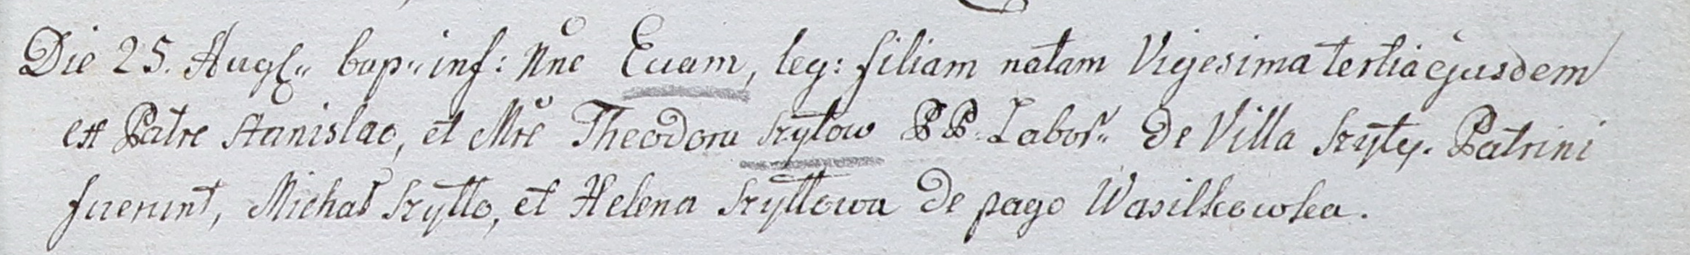 Die 25. Augſ„ bap„ inf: Nne Euam, leg: filiam natam Vigesima tertia ejusdem
ex Patre Stanislao, et Mre Theodora Szytow PP. Labor„ De Villa Szyty. Patrini
fuerunt, Michał Szytło, et Helena Szyttowa De pago Wasilkowka.